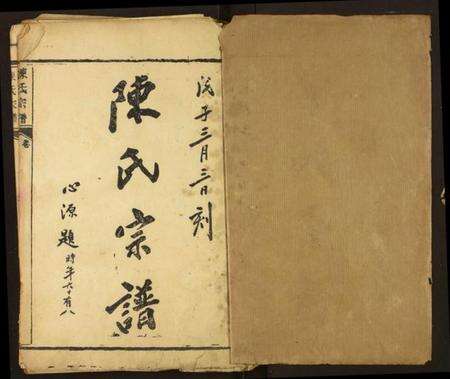 戊子三月三日刻
陳氏宗譜
心源題時年六十有八
陳氏宗譜
卷